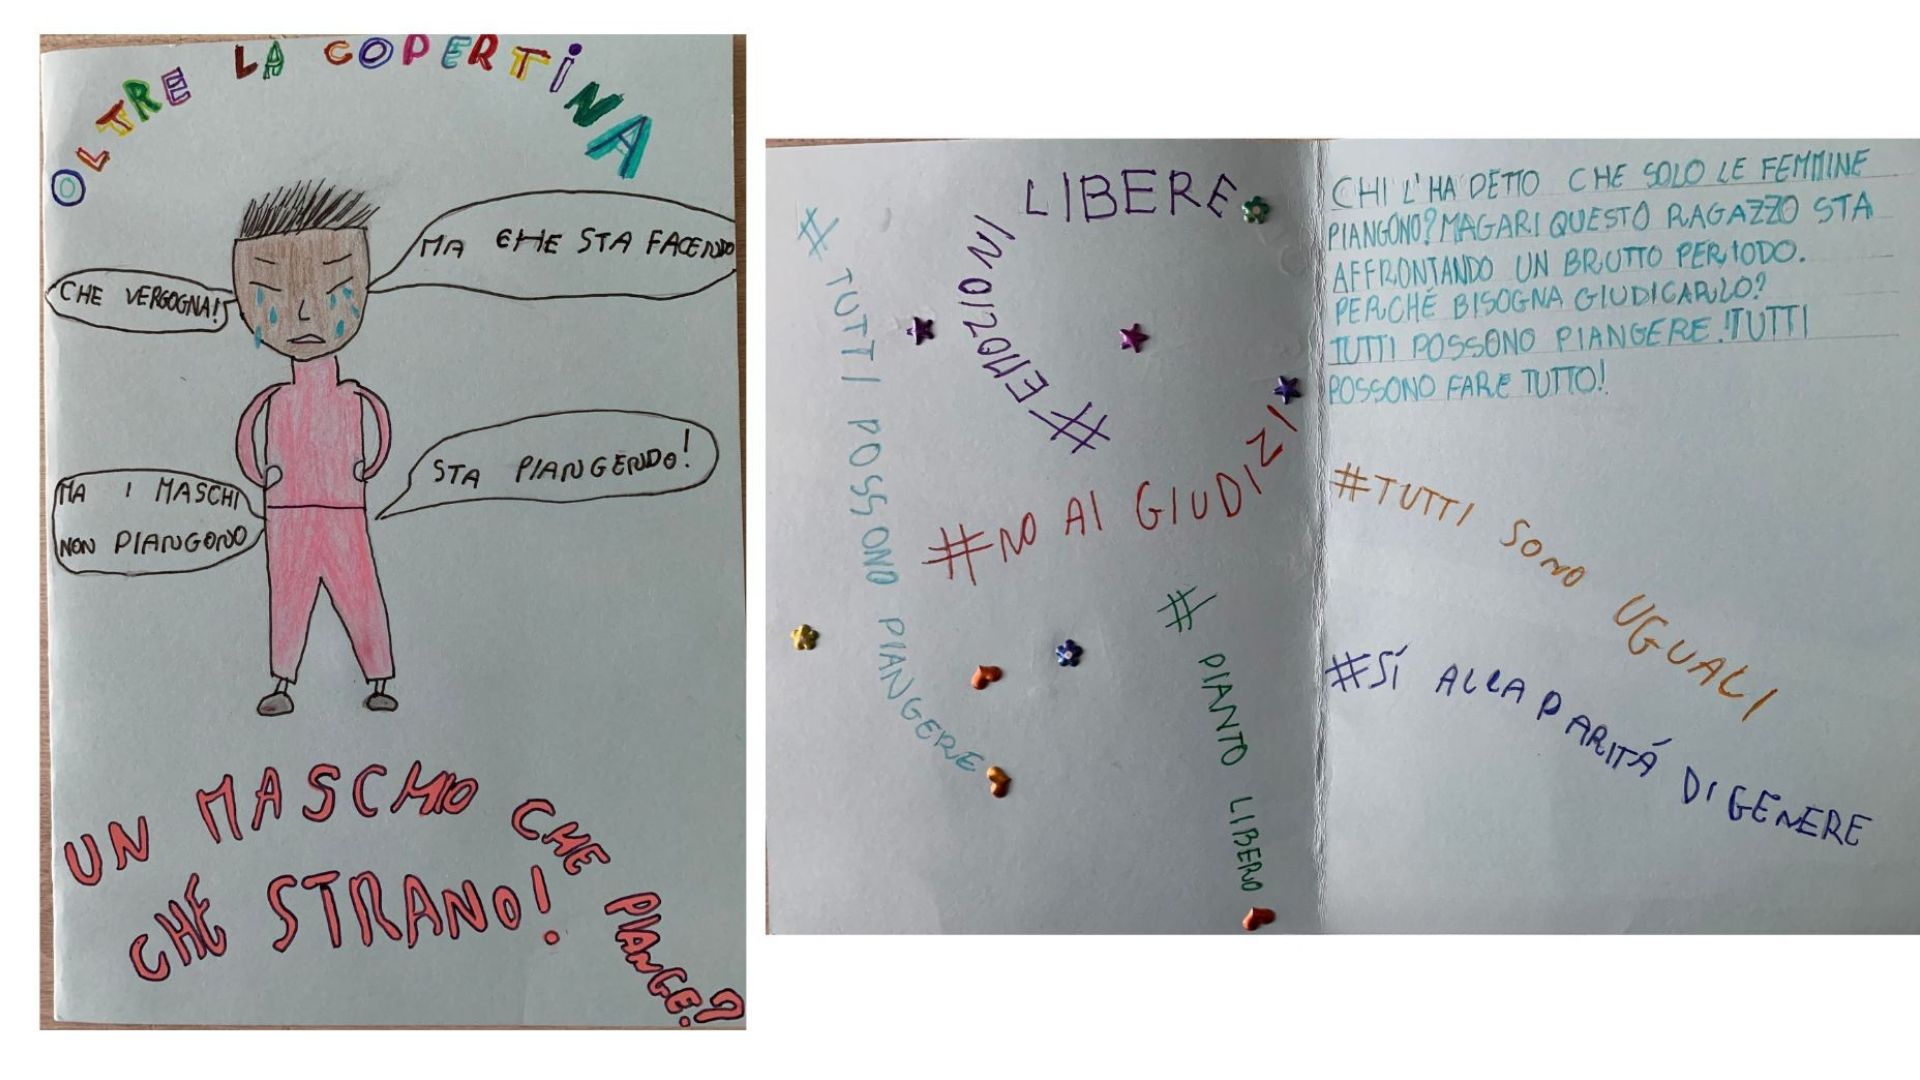 OLTRE LA COPERTINA
MA CHE STA FACENDO
CHE VERGOGNA!
STA PIANGENDO!
MA I MASCHI
NON PIANGONO
UN MASCHIO CHE PIANGE?
CHE STRANO!
#EMOZIONI LIBERE
#TUTTI POSSONO PIANGERE
#NO AI GIUDIZI
#PIANTO LIBERO
CHI L'HA DETTO CHE SOLO LE FEMMINE
PIANGONO? MAGARI QUESTO RAGAZZO STA
AFFRONTANDO UN BRUTTO PERIODO.
PERCHÉ BISOGNA GIUDICARLO?
TUTTI POSSONO PIANGERE. TUTTI
POSSONO FARE TUTTO!
#TUTTI SONO UGUALI
#SÍ ALLA PARITÁ DI GENERE